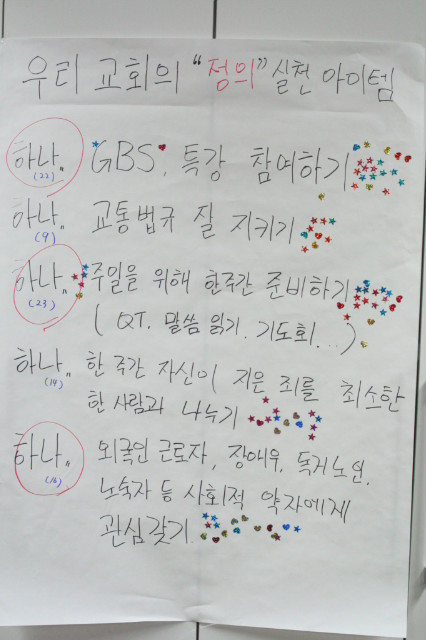 우리 교회의 "정의" 실천 아이템
하나, GBS, 특강 참여하기
(22)
하나, 교통법규 잘 지키기
(9)
하나, 주일을 위해 한주간 준비하기
(23) (QT, 말씀 읽기, 기도회...)
하나, 한 주간 자신이 지은 죄를 최소한
(14) 한 사람과 나누기
하나, 외국인 근로자, 장애우, 독거노인,
(16) 노숙자 등 사회적 약자에게
관심갖기